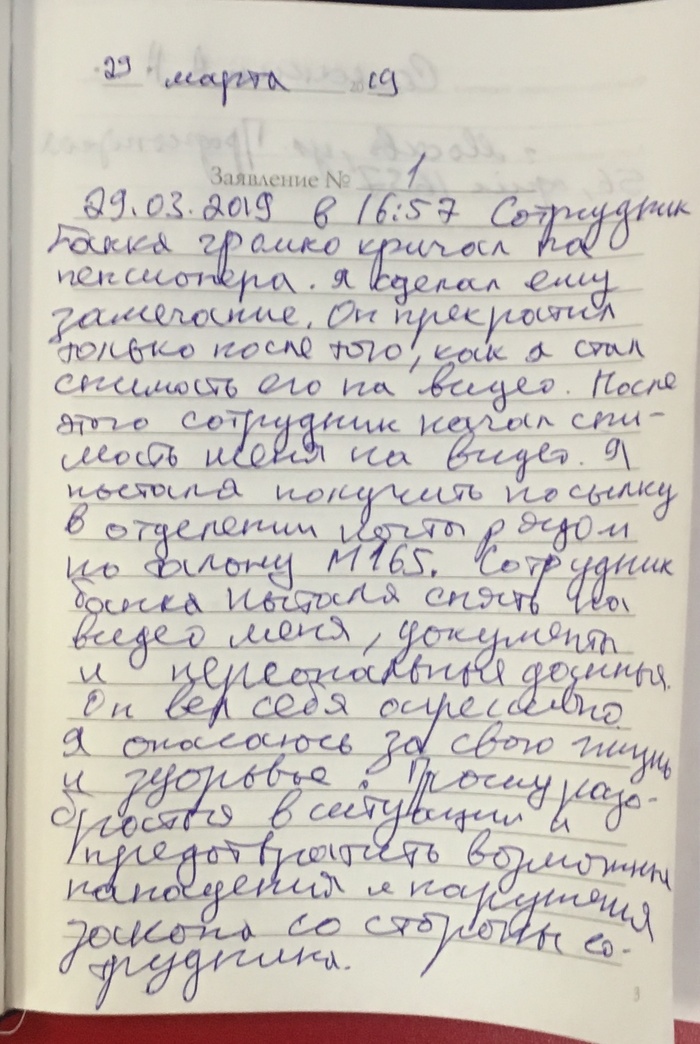 29 марта 2019
Заявление № 1
29.03.2019 в 16:57 Сотрудник
банка громко кричал на
пенсионера. Я сделал ему
замечание. Он прекратил
только после того, как я стал
снимать его на видео. После
этого сотрудник начал сни-
мать меня на видео. Я
пытался получить посылку
в отделении почты рядом
по талону М165. Сотрудник
банка пытался снять на
видео меня, документы
и персональные данные.
Он вел себя агрессивно.
Я опасаюсь за свою жизнь
и здоровье. Прошу разо-
браться в ситуации и
предотвратить возможные
нападения и нарушения
закона со стороны со-
трудника.
3